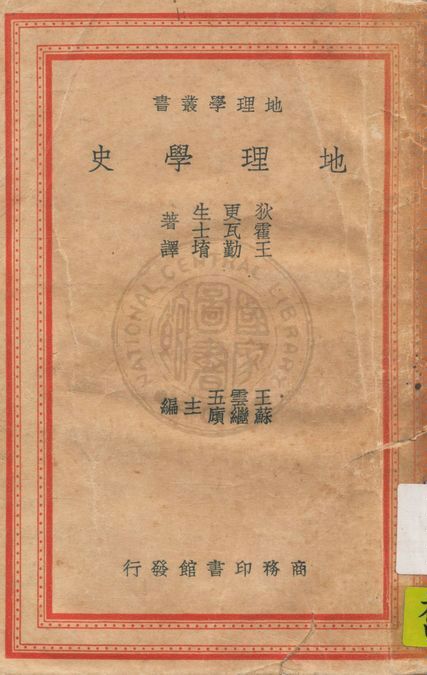 地理學叢書
地理學史
狄更生
霍瓦士 著
王勤堉 譯
NATIONAL CENTRAL LIBRARY
王雲五
蘇繼廎 主編
商務印書館發行